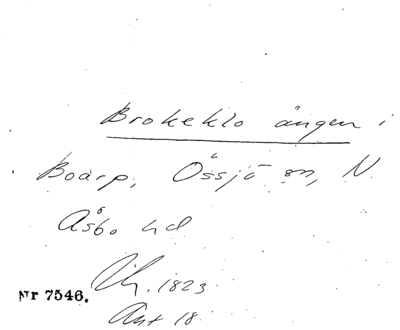 Brokeklo ängen i
Boarp, Össjö sn, N.
Åsbo hd
1823
Nr 7546.
Akt 18